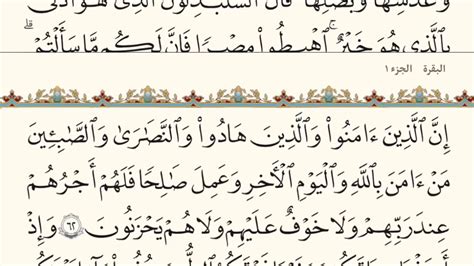 وَعَدَسِهَا وَبَصَلِهَا قَالَ أَتَسْتَبْدِلُونَ ٱلَّذِى هُوَ أَدْنَىٰ
بِٱلَّذِى هُوَ خَيْرٌ ٱهْبِطُوا۟ مِصْرًا فَإِنَّ لَكُم مَّا سَأَلْتُمْ
البقرة الجزء ١
إِنَّ ٱلَّذِينَ ءَامَنُوا۟ وَٱلَّذِينَ هَادُوا۟ وَٱلنَّصَٰرَىٰ وَٱلصَّٰبِـِٔينَ
مَنْ ءَامَنَ بِٱللَّهِ وَٱلْيَوْمِ ٱلْءَاخِرِ وَعَمِلَ صَٰلِحًا فَلَهُمْ أَجْرُهُمْ
عِندَ رَبِّهِمْ وَلَا خَوْفٌ عَلَيْهِمْ وَلَا هُمْ يَحْزَنُونَ ٦٢ وَإِذْ